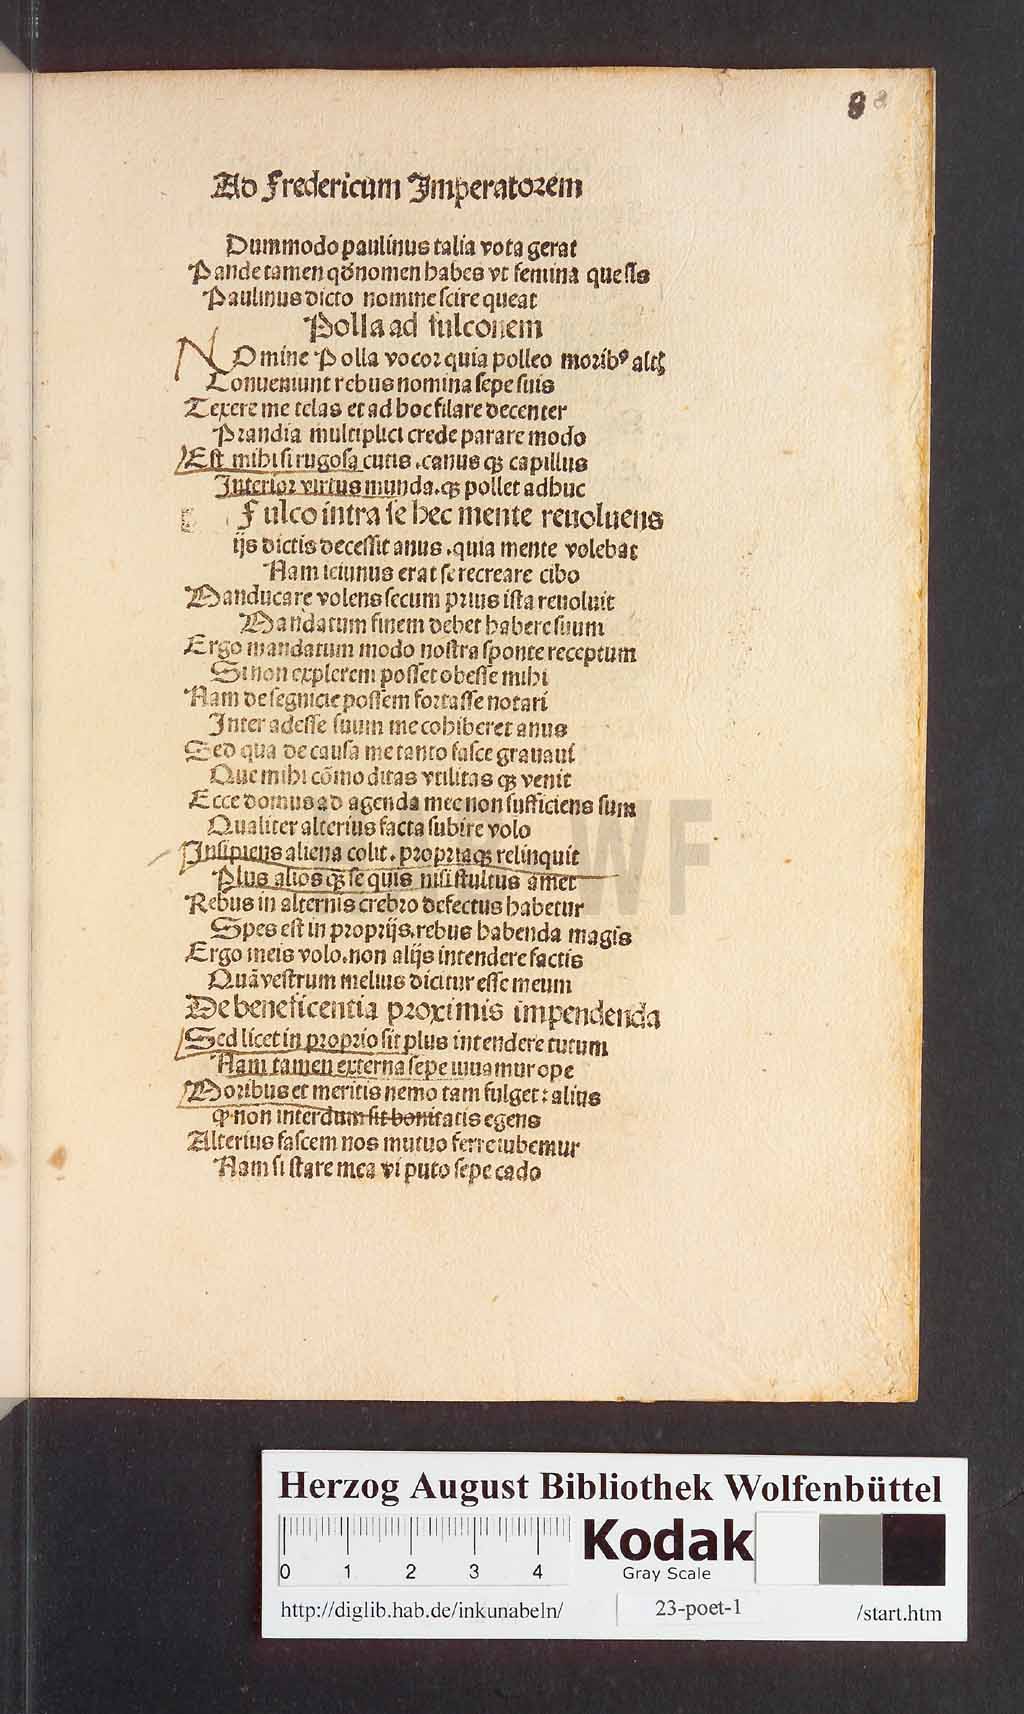 8 8
Ad Fredericum Imperatorem
Dummodo paulinus talia vota gerat
Pande tamen qd̄ nomen habes vt femina quęsis
Paulinus dicto nomine scire queat
Polla ad fulconem
NOmine Polla vocor quia polleo moribꝰ altꝭ
Conueniunt rebus nomina sepe suis
Texere me telas et ad hoc filare decenter
Prandia multiplici crede parare modo
Est mihi si rugosa cutis .canus qꝫ capillus
Interior virtus munda.qꝫ pollet adhuc
Fulco intra se hec mente reuoluens
ijs dictis decessit anus .quia mente volebat
Nam ieiunus erat se recreare cibo
Manducare volens secum prius ista reuoluit
Mandatum finem debet habere suum
Ergo mandatum modo nostra sponte receptum
Si non explerem posset obesse mihi
Nam de segnicie possem fortasse notari
Inter adesse suum me cohiberet anus
Sed qua de causa me tanto fasce grauaui
Que mihi cōmoditas vtilitas qꝫ venit
Ecce domus ad agenda mee non sufficiens sum
Qualiter alterius facta subire volo
Insipiens aliena colit . propriaqꝫ relinquit
Plus alios qꝫ se quis nisi stultus amet
Rebus in alternis crebro defectus habetur
Spes est in proprijs.rebus habenda magis
Ergo meis volo.non alijs intendere factis
Quā vestrum melius dicitur esse meum
De beneficentia proximis impendenda
Sed licet in proprio sit plus intendere tutum
Nam tamen externa sepe iuuamur ope
Moribus et meritis nemo tam fulget: alius
qꝫ non interdum sit bonitatis egens
Alterius fascem nos mutuo ferre iubemur
Nam si stare mea vi puto sepe cado
WF
Herzog August Bibliothek Wolfenbüttel
0 1 2 3 4
Kodak
Gray Scale
http://diglib.hab.de/inkunabeln/ 23-poet-1 /start.htm